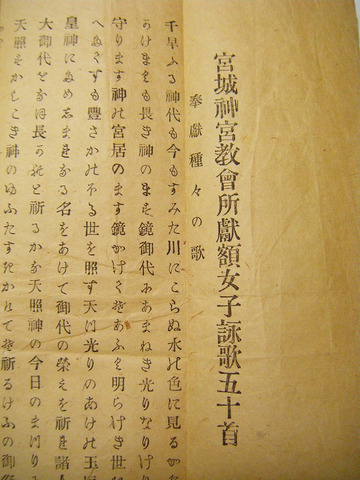 宮城神宮教會所獻額女子詠歌五十首
奉獻種々の歌
千早ふる神代も今もすみた川にこらぬ水の色に見るかな
かけまくも長き神のます鏡御代にあまねき光りなりけり
守ります神の宮居のます鏡かけ 明らけき世
も豊さかのほる世を照す天つ光りのあけの玉
皇神に 名をあけて御代の榮えを祈る諸人
大御代をなほ長かれと祈るかな天照神の今日のまつり
天照をかしこき神のゆふたすきかけてそ祈るけふの御